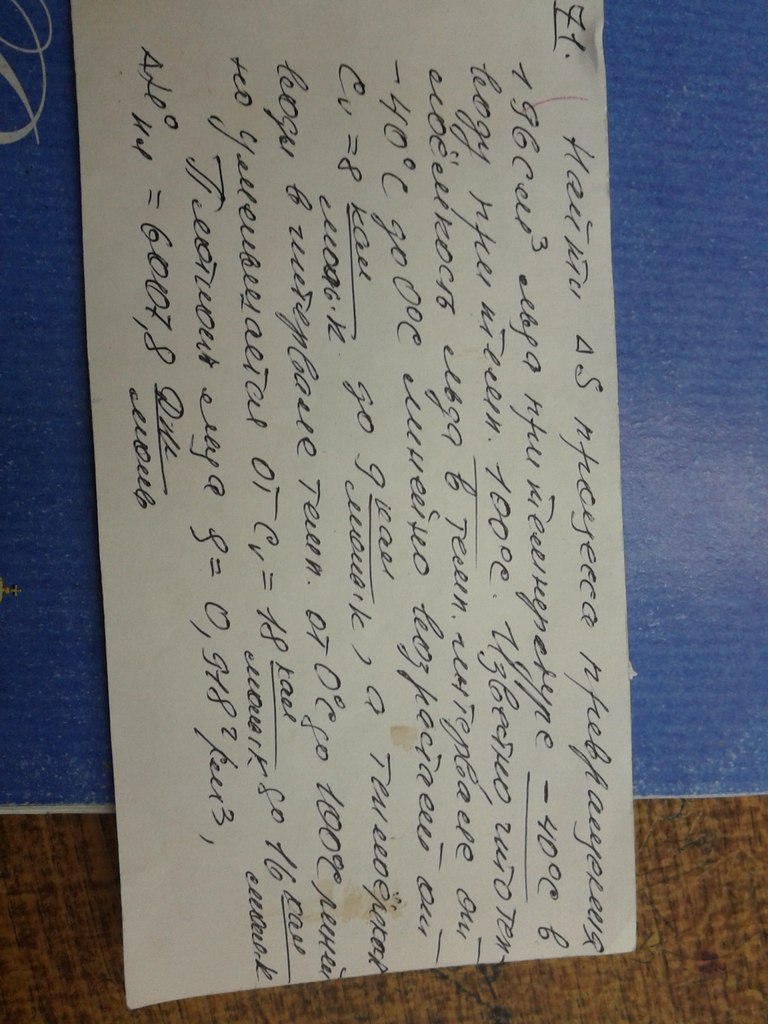 71.
Найти ΔS процесса превращения
196 см³ льда при температуре -40°С в
воду при темп. 100°С. Известно что теп-
лоёмкость льда в темп. интервале от
-40°С до 0°С линейно возрастает от
Cv = 8 кал/моль·К до 9 кал/моль·К, а теплоёмкость
воды в интервале темп. от 0°С до 100°С линей
но уменьшается от Cv = 18 кал/моль·К до 16 кал/моль·К
Плотность льда ρ = 0,918 г/см³,
ΔH°пл = 6007,8 Дж/моль